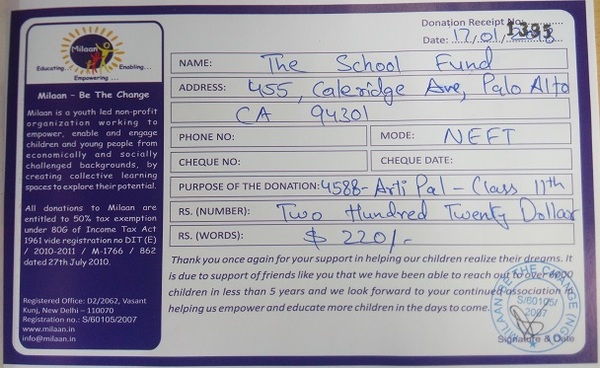 Milaan
Educating... Enabling...
Empowering ...
Milaan – Be The Change
Milaan is a youth led non-profit
organization working to
empower, enable and engage
children and young people from
economically and socially
challenged backgrounds, by
creating collective learning
spaces to explore their potential.
All donations to Milaan are
entitled to 50% tax exemption
under 80G of Income Tax Act
1961 vide registration no DIT (E)
/ 2010-2011 / M-1766 / 862
dated 27th July 2010.
Registered Office: D2/2062, Vasant
Kunj, New Delhi – 110070
Registration no.: S/60105/2007
www.milaan.in
info@milaan.in
Donation Receipt No. 1395
Date: 17/01/
NAME: The School Fund
ADDRESS: 455, Caleridge Ave, Palo Alto
CA 94301
PHONE NO: MODE: NEFT
CHEQUE NO: CHEQUE DATE:
PURPOSE OF THE DONATION: 4588- Arti Pal - Class 11th
RS. (NUMBER): Two Hundred Twenty Dollar
RS. (WORDS): $ 220/-
Thank you once again for your support in helping our children realize their dreams. It
is due to support of friends like you that we have been able to reach out to over 6000
children in less than 5 years and we look forward to your continued association in
helping us empower and educate more children in the days to come.
MILAAN BE THE CHANGE (NGO)
S/60105/
2007
Signature & Date